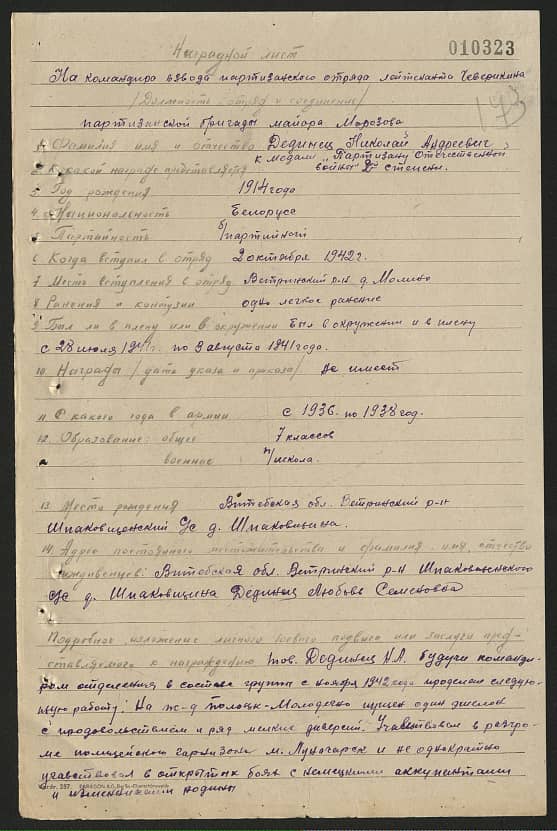 Наградной лист
010323
173
На командира взвода партизанского отряда лейтенанта Чеверикина
/Должность отряд и соединение/
партизанской бригады майора Морозова
1. Фамилия имя и отчество Дединец Николай Андреевич
к медали „Партизану Отечественной
2. К какой награде представляется войны" 2й степени.
3 Год рождения 1914 года
4. Национальность Белорусс
5 Партийность б/партийной
6 Когда вступил в отряд 2 октября 1942 г.
7 Место вступления в отряд Ветринский р-н д.
8 Ранения и контузии одно легкое ранение
9 Был ли в плену или в окружении Был в окружении и в плену
с 28 июля 1941г. по 8 августа 1941 года.
10. Награды /дата указа и приказа/ Не имеет
11 С какого года в армии с 1936. по 1938 год.
12. Образование: общее 7 классов
военное п/школа.
13. Место рождения Витебская обл. Ветринский р-н
Шпаковщенский С/с д. Шпаковщина.
14. Адрес постоянного местожительства и фамилия, имя, отчество
иждивенцев: Витебская обл. Ветринский р-н Шпаковщенского
С/с д. Шпаковщина Дединец Любовь Семеновна
Подробное изложение личного боевого подвига или заслуги пред-
ставляемого к награждению Тов. Дединец Н.А. будучи команди-
ром отделения в составе группы с ноября 1942 года проделал следую-
щую работу: На ж-д Полоцк-Молодечно пущен один эшелон
с продовольствием и ряд мелких диверсий. Учавствовал в разгро-
ме полицейского гарнизона м. и не однократно
учавствовал в открытых боях с немецкими аккупантами
и изменниками родины